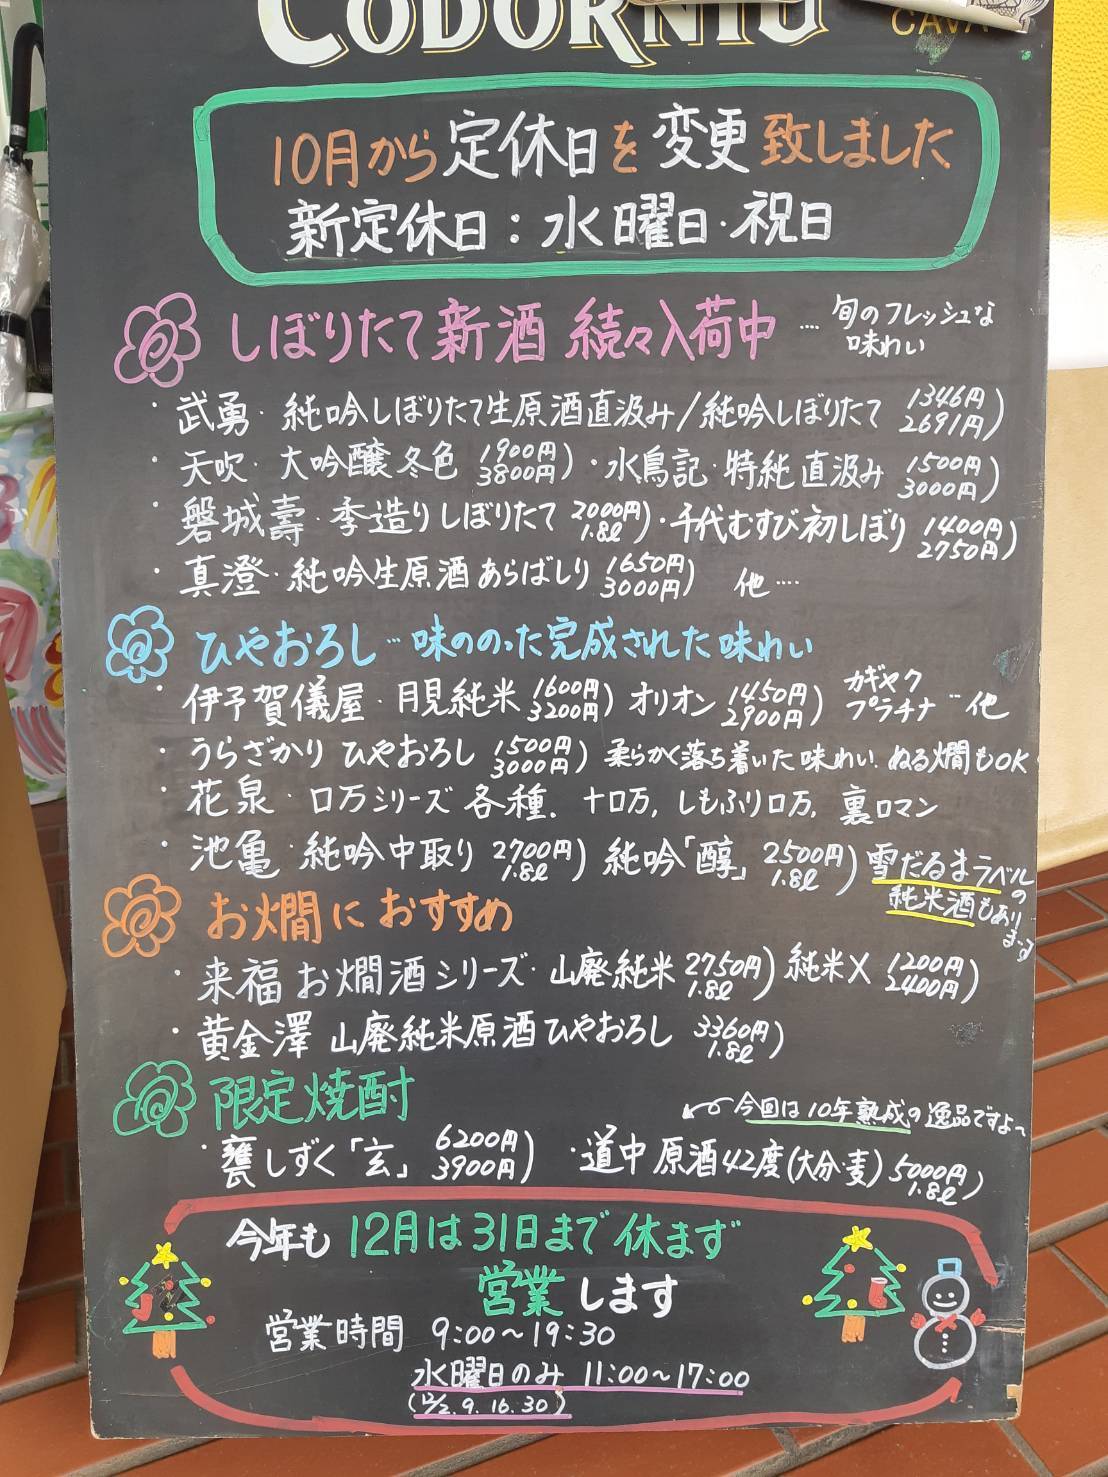 CODORNÍU
CAVA
10月から定休日を変更致しました
新定休日：水曜日・祝日
しぼりたて新酒 続々入荷中 … 旬のフレッシュな
味わい
・武勇・純吟しぼりたて生原酒直汲み/純吟しぼりたて 1346円
2691円)
・天吹・大吟醸冬色 1900円
3800円) ・水鳥記・特純直汲み 1500円
3000円)
・磐城壽・季造りしぼりたて 2000円
1.8ℓ) ・千代むすび初しぼり 1400円
2750円)
・真澄・純吟生原酒あらばしり 1650円
3000円) 他…
ひやおろし…味ののった完成された味わい
・伊予賀儀屋・月見純米 1600円
3200円) オリオン 1450円
2900円) カギヤク
プラチナ …他
・うらざかり ひやおろし 1500円
3000円) 柔らかく落ち着いた味わい、ぬる燗もOK
・花泉・ロ万シリーズ各種、十ロ万、しもふりロ万、裏ロマン
・池亀・純吟中取り 2700円
1.8ℓ) 純吟「醇」 2500円
1.8ℓ) 雪だるまラベルの
純米酒もあり
ます
お燗におすすめ
・来福 お燗酒シリーズ・山廃純米 2750円
1.8ℓ) 純米X 1200円
2400円)
・黄金澤 山廃純米原酒ひやおろし 3360円
1.8ℓ)
限定焼酎
今回は10年熟成の逸品ですよ〜
・甕しずく「玄」 6200円
3900円) ・道中 原酒42度(大分・麦) 5000円
1.8ℓ)
今年も 12月は31日まで休まず
営業します
営業時間 9:00〜19:30
水曜日のみ 11:00〜17:00
(12/2. 9. 16. 30)